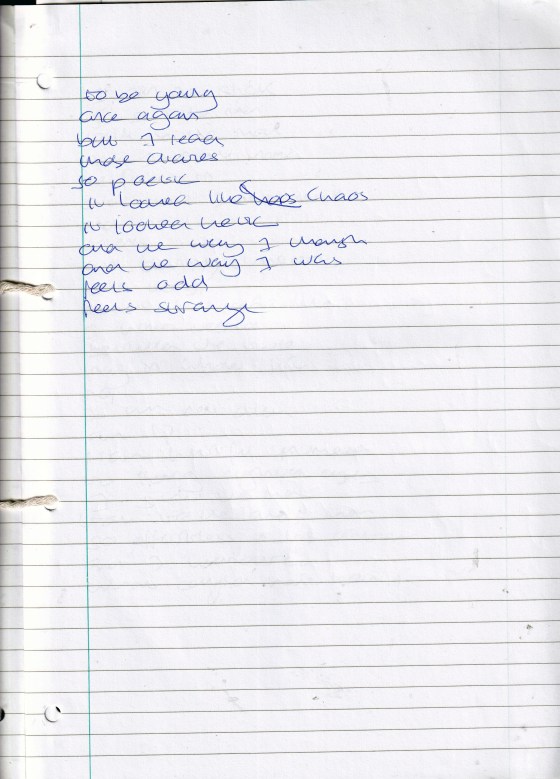 to be young
once again
but I read
those diaries
so poetic
it looked like Chaos
it looked hectic
and the way I thought
and the way I was
feels odd
feels strange